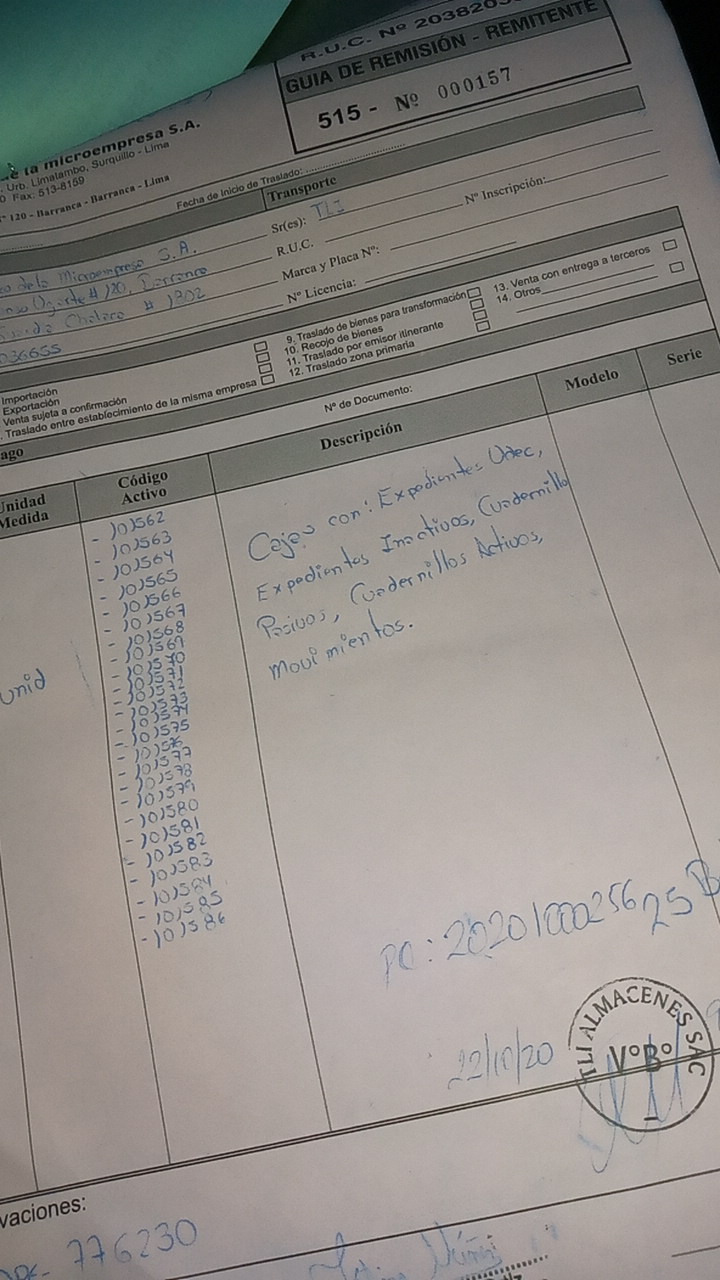 R.U.C. Nº 20382
GUIA DE REMISIÓN - REMITENTE
515 - Nº 000157
de la microempresa S.A.
Urb. Limatambo, Surquillo - Lima
Fax: 513-8159
Nº 120 - Barranca - Barranca - Lima
Fecha de Inicio de Traslado:
Transporte
Sr(es): TLI
Nº Inscripción:
R.U.C.
Marca y Placa Nº:
Nº Licencia:
de la Microempresa S.A.
Ugarte # 120, Barranca
Chalaco # 1302
036655
Importación
Exportación
Venta sujeta a confirmación
Traslado entre establecimiento de la misma empresa
9. Traslado de bienes para transformación
10. Recojo de bienes
11. Traslado por emisor itinerante
12. Traslado zona primaria
13. Venta con entrega a terceros
14. Otros
Nº de Documento:
Unidad Medida
Código Activo
Descripción
Modelo
Serie
unid
- 101562
- 101563
- 101564
- 101565
- 101566
- 101567
- 101568
- 101569
- 101570
- 101571
- 101572
- 101573
- 101574
- 101575
- 101576
- 101577
- 101578
- 101579
- 101580
- 101581
- 101582
- 101583
- 101584
- 101585
- 101586
Cajas con: Expedientes Udec,
Expedientes Inactivos, Cuadernillo
Pasivos, Cuadernillos Activos,
Movimientos.
22/10/20
TLI ALMACENES SAC
VºBº
vaciones:
776230
Núñez